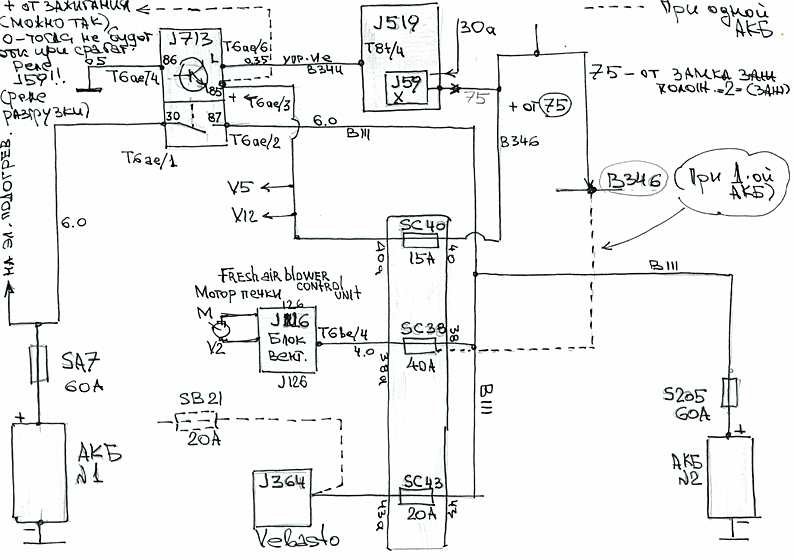 + от ЗАЖИГАНИЯ
(МОЖНО ТАК)
0-тогда не будет
при сработ.
Реле
J59!!
(реле
РАЗГРУЗКИ)
0.5
J713
86
85
30
87
T6ae/4
T6ae/6
0.35
+ T6ae/3
T6ae/2
T6ae/1
6.0
BIII
упр.
B344
J519
T8t/4
J59
X
30a
75
При одной
АКБ
75 - от ЗАМКА ЗАЖ
+ от 75
B346
B346
(При 1-ой
АКБ)
НА ЭЛ. ПОДОГРЕВ.
6.0
V5
V12
SC40
40a
40
15A
BIII
Fresh air blower
CONTROL
UNIT
Мотор печки
J126
M
V2
J126
БЛОК
ВЕНТ.
J126
T6be/4
4.0
SC38
38a
38
40A
BIII
SA7
60A
SB21
20A
S205
60A
+
АКБ
№1
-
J364
Vebasto
SC43
43a
20A
+
АКБ
№2
-